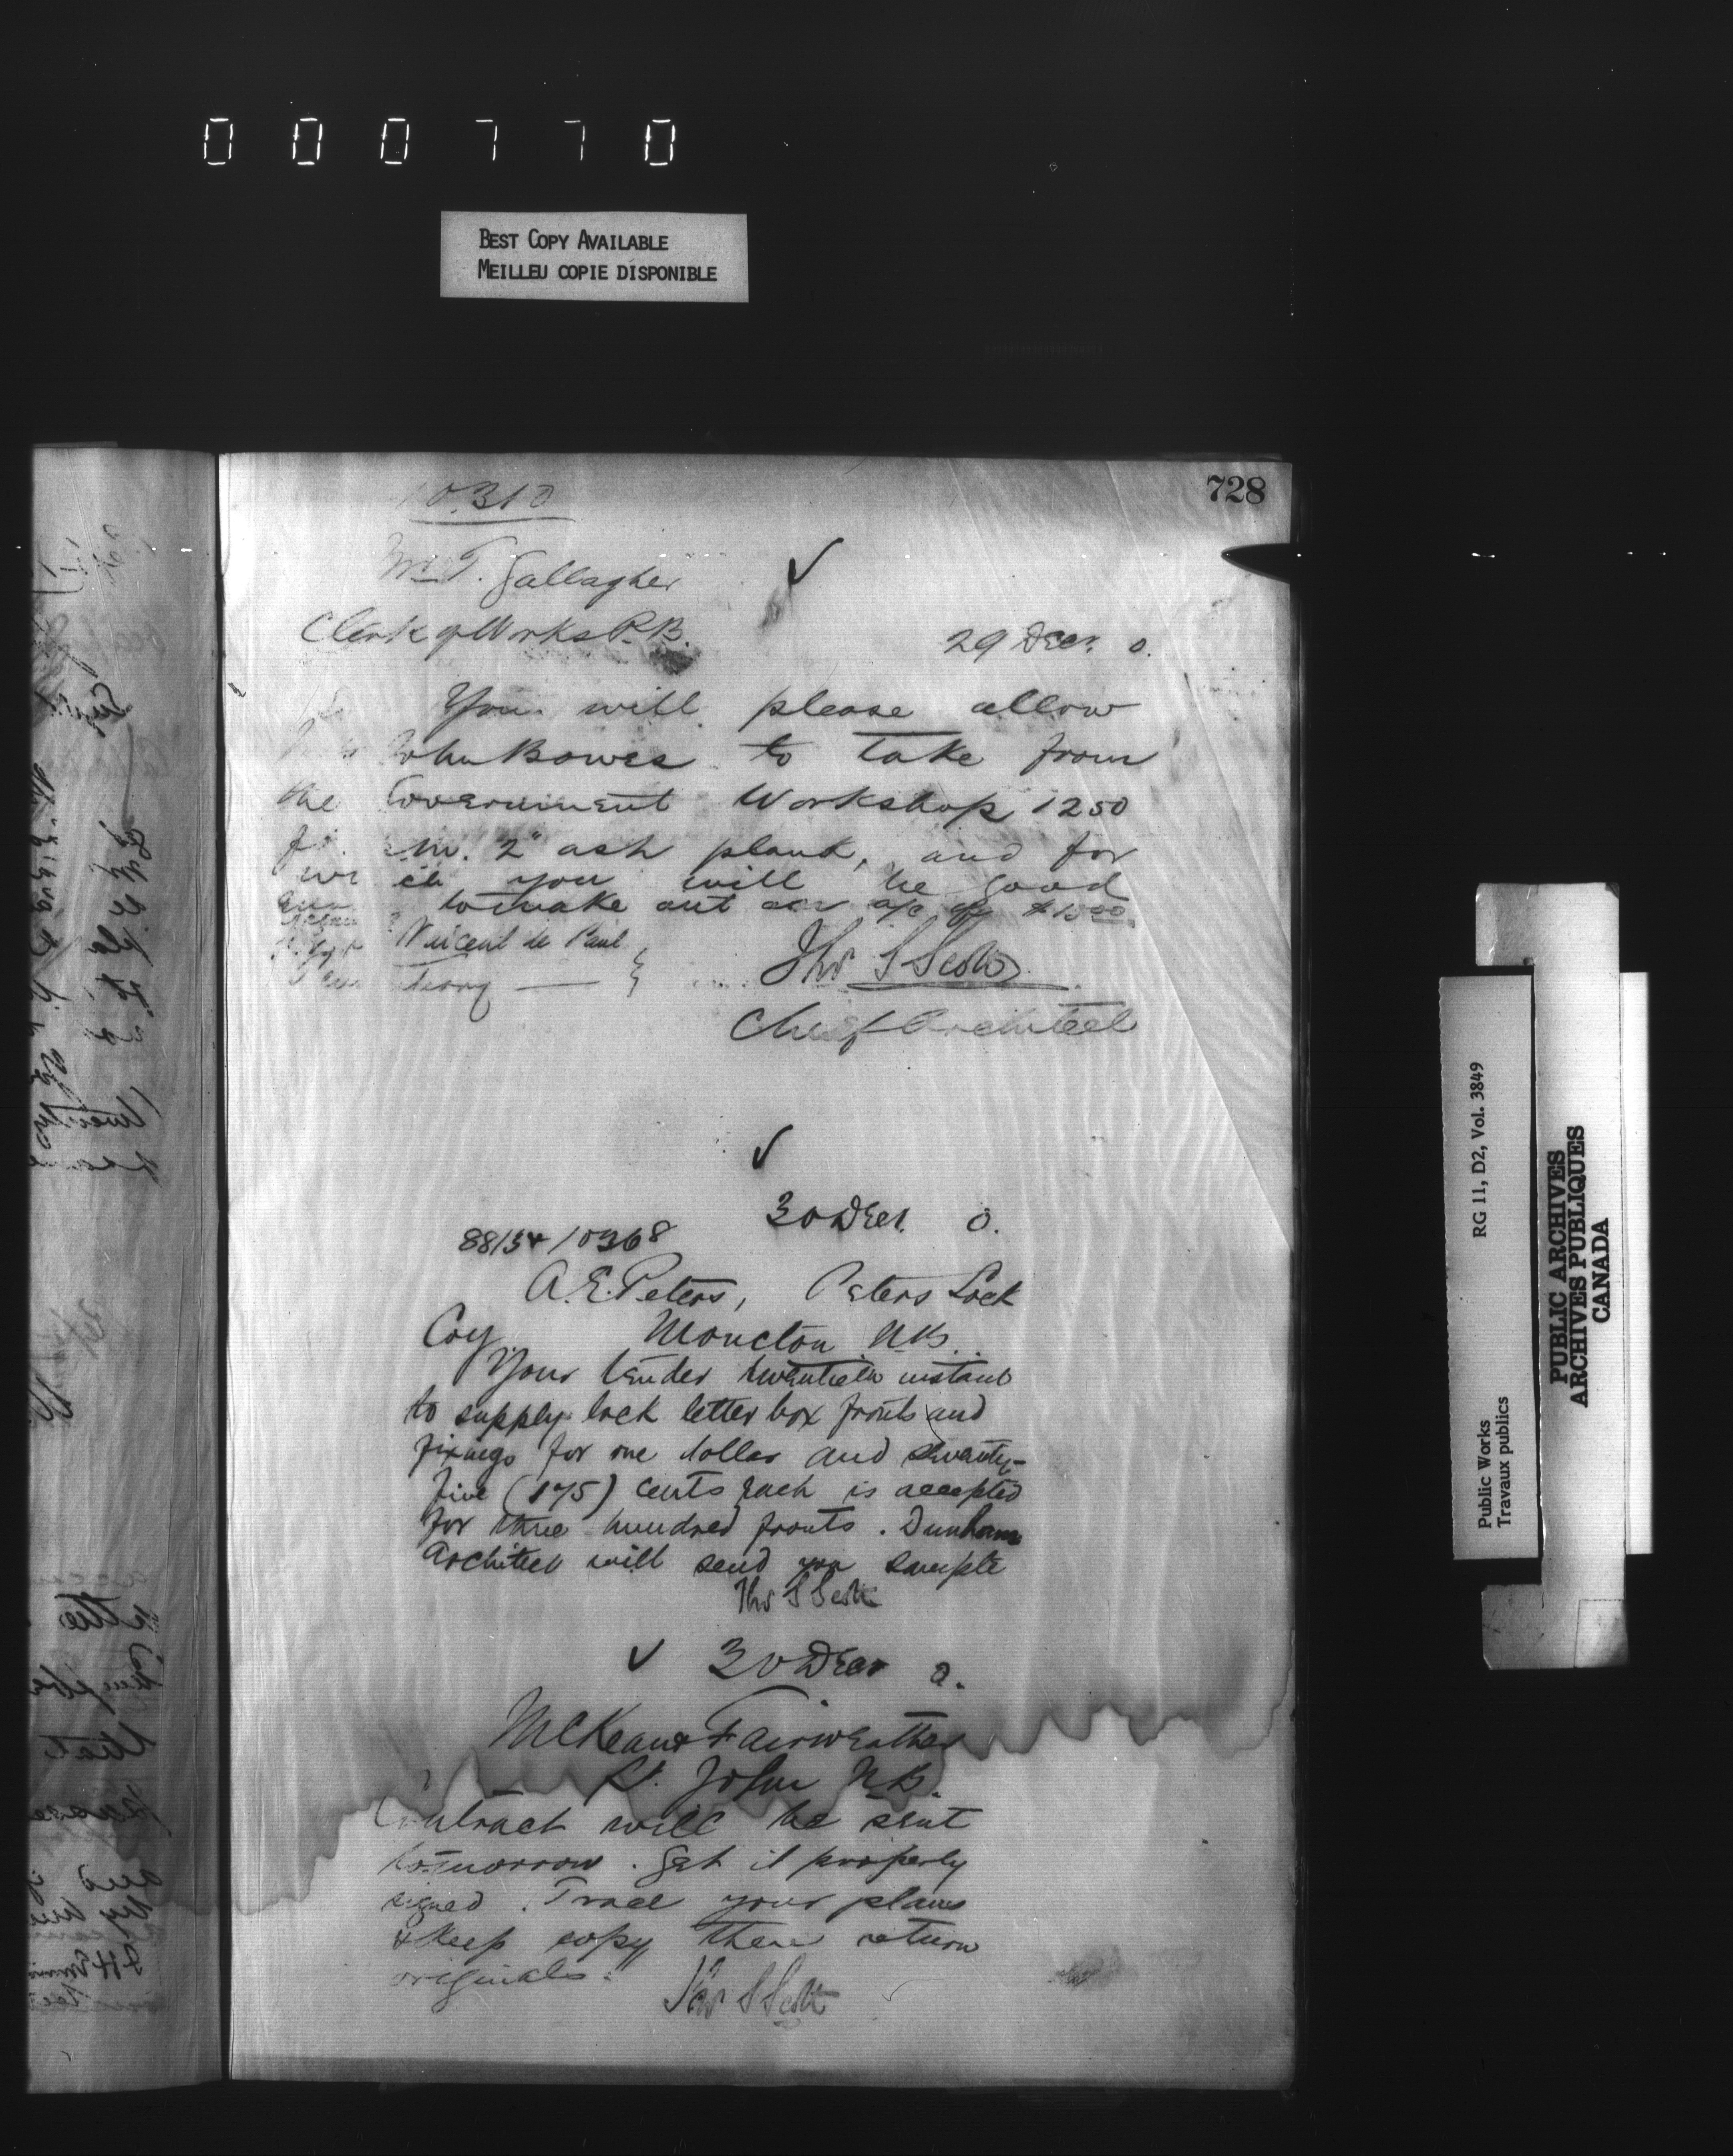 000770
BEST COPY AVAILABLE
MEILLEU COPIE DISPONIBLE
728
10310
Mr T. Gallagher
Clerk of Works P.B.
29 Decr. 0.
You will please allow
John Bowes to take from
the Government Workshop 1250
2" ash plank, and for
you will be good
to make out a/c of
Vincent de Paul
Thos S Scott
Chief Architect
30 Decr. 0.
8815 & 10368
A. E. Peters, Peters Lock
Coy Moncton N.B.
Your tender twentieth instant
to supply lock letter box fronts and
fixings for one dollar and seventy-
five (175) cents each is accepted
for three hundred fronts. Dunham
Architect will send you sample
Thos S Scott
30 Decr 0.
McKean & Fairweather
St. John N.B.
Contract will be sent
tomorrow. Get it properly
signed. Trace your plans
& keep copy then return
originals.
Thos S Scott
RG 11, D2, Vol. 3849
Public Works
Travaux publics
PUBLIC ARCHIVES
ARCHIVES PUBLIQUES
CANADA